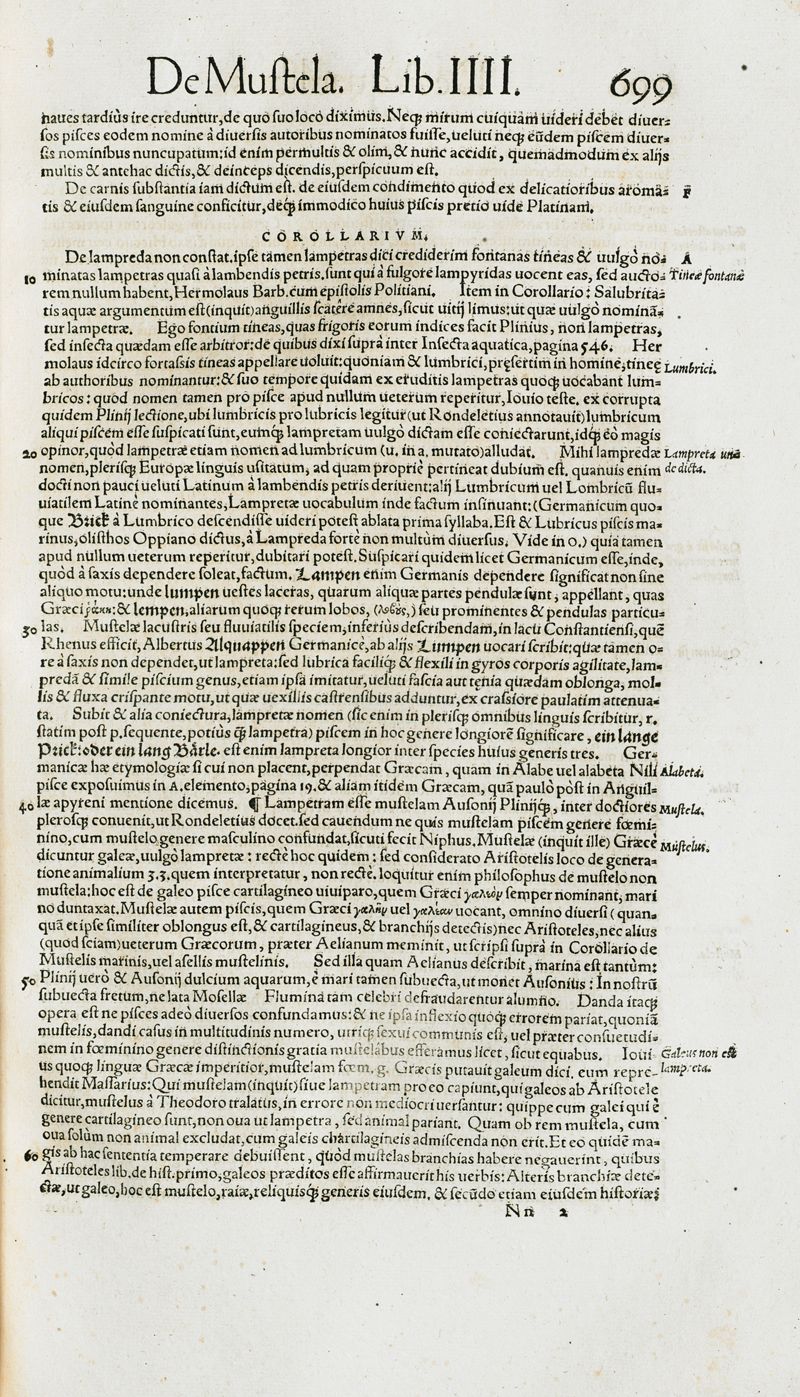 De Muſtela. Lib. IIII. 699
naues tardiùs ire creduntur, de quo ſuo loco diximus. Neqꝫ mirum cuiquam uideri debet diuer-
ſos piſces eodem nomine à diuerſis autoribus nominatos fuiſſe, ueluti neqꝫ eũdem piſcem diuer-
ſis nominibus nuncupatum: id enim permultis & olim, & nunc accidit, quemadmodum ex alijs
multis & antehac dictis, & deinceps dicendis, perſpicuum eſt.
De carnis ſubſtantia iam dictum eſt. de eiuſdem condimento quod ex delicatioribus aromã- F
tis & eiuſdem ſanguine conficitur, deqꝫ immodico huius piſcis pretio uide Platinam.
COROLLARIVM.
De lampreda non conſtat. ipſe tamen lampetras dici crediderim fontanas tineas & uulgò no- A
10 minatas lampetras quaſi à lambendis petris. ſunt qui à fulgore lampyridas uocent eas, ſed aucto- Tineæ fontanæ
rem nullum habent, Hermolaus Barb. cum epiſtolis Politiani. Item in Corollario: Salubrita-
tis aquæ argumentum eſt (inquit) anguillis ſcatêre amnes, ſicut uitij limus: ut quæ uulgò nomina-
tur lampetræ. Ego fontium tineas, quas frigoris eorum indices facit Plinius, non lampetras,
ſed inſecta quædam eſſe arbitror: de quibus dixi ſuprà inter Inſecta aquatica, pagina 546. Her
molaus idcirco fortaſsis tineas appellare uoluit: quoniam & lumbrici, pręſertim in homine, tineę Lumbrici.
ab authoribus nominantur: & ſuo tempore quidam ex eruditis lampetras quoqꝫ uocabant lum-
bricos: quod nomen tamen pro piſce apud nullum ueterum reperitur, Iouio teſte. ex corrupta
quidem Plinij lectione, ubi lumbricis pro lubricis legitur (ut Rondeletius annotauit) lumbricum
aliqui piſcem eſſe ſuſpicati ſunt, eumqꝫ lampretam uulgò dictam eſſe coniectarunt, idqꝫ eò magis
20 opinor, quòd lampetræ etiam nomen ad lumbricum (u, in a. mutato) alludat. Mihi lampredæ Lampreta unde dicta.
nomen, pleriſqꝫ Europæ linguis uſitatum, ad quam propriè pertineat dubium eſt. quanuis enim
docti non pauci ueluti Latinum à lambendis petris deriuent: alij Lumbricum uel Lombricũ flu-
uiatilem Latinè nominantes, Lampretæ uocabulum inde factum inſinuant: (Germanicum quo-
que Brick à Lumbrico deſcendiſſe uideri poteſt ablata prima ſyllaba. Eſt & Lubricus piſcis ma-
rinus, oliſthos Oppiano dictus, à Lampreda fortè non multùm diuerſus, Vide in O.) quia tamen
apud nullum ueterum reperitur, dubitari poteſt. Suſpicari quidem licet Germanicum eſſe, inde,
quòd à ſaxis dependere ſoleat, factum. Lampen enim Germanis dependere ſignificat non ſine
aliquo motu: unde lumpen ueſtes laceras, quarum aliquæ partes pendulæ ſunt, appellant, quas
Græci ῥάκη: & lempen, aliarum quoqꝫ rerum lobos, (λοβοὺς,) ſeu prominentes & pendulas particu-
30 las. Muſtelæ lacuſtris ſeu fluuiatilis ſpeciem, inferiùs deſcribendam, in lacu Conſtantienſi, quẽ
Rhenus efficit, Albertus Alquappen Germanicè, ab alijs Lumpen uocari ſcribit: quæ tamen o-
re à ſaxis non dependet, ut lampreta: ſed lubrica faciliqꝫ & flexili in gyros corporis agilitate, lam-
predã & ſimile piſcium genus, etiam ipſa imitatur, ueluti faſcia aut tęnia quædam oblonga, mol-
lis & fluxa criſpante motu, ut quæ uexillis caſtrenſibus adduntur, ex craſsiore paulatim attenua-
ta. Subit & alia coniectura, lampretæ nomen (ſic enim in pleriſqꝫ omnibus linguis ſcribitur, r.
ſtatim poſt p. ſequente, potiùs qꝫ lampetra) piſcem in hoc genere longiorẽ ſignificare, ein lange
Prick: oder ein lang Bärle. eſt enim lampreta longior inter ſpecies huius generis tres. Ger-
manicæ hæ etymologiæ ſi cui non placent, perpendat Græcam, quam in Alabe uel alabeta Nili Alabeta.
piſce expoſuimus in A. elemento, pagina 19. & aliam itidem Græcam, quã paulò pòſt in Anguil-
40 læ apyreni mentione dicemus. ¶ Lampetram eſſe muſtelam Auſonij Plinijqꝫ, inter doctiores Muſtela.
pleroſqꝫ conuenit, ut Rondeletius docet. ſed cauendum ne quis muſtelam piſcem genere fœmi-
nino, cum muſtelo genere maſculino confundat, ſicuti fecit Niphus. Muſtelæ (inquit ille) Græcè Muſtelus.
dicuntur galeæ, uulgò lampretæ: rectè hoc quidem: ſed conſiderato Ariſtotelis loco de genera-
tione animalium 3.3. quem interpretatur, non rectè. loquitur enim philoſophus de muſtelo non
muſtela: hoc eſt de galeo piſce cartilagineo uiuiparo, quem Græci γαλεὸν ſemper nominant, mari
no duntaxat. Muſtelæ autem piſcis, quem Græci γαλῆν uel γαλέαν uocant, omnino diuerſi (quan-
quã et ipſe ſimiliter oblongus eſt, & cartilagineus, & branchijs detectis) nec Ariſtoteles, nec alius
(quod ſciam) ueterum Græcorum, præter Aelianum meminit, ut ſcripſi ſuprà in Corollario de
Muſtelis marinis, uel aſellis muſtelinis. Sed illa quam Aelianus deſcribit, marina eſt tantùm:
50 Plinij uerò & Auſonij dulcium aquarum, è mari tamen ſubuecta, ut monet Auſonius: In noſtrũ
ſubuecta fretum, ne lata Moſellæ Flumina tam celebri defraudarentur alumno. Danda itaqꝫ
opera eſt ne piſces adeò diuerſos confundamus: & ne ipſa inflexio quoqꝫ errorem pariat, quoniã
muſtelis, dandi caſus in multitudinis numero, utriqꝫ ſexui communis eſt, uel præter conſuetudi-
nem in fœminino genere diſtinctionis gratia muſtelabus efferamus licet, ſicut equabus. Ioui- Galeus non eſt lampreta.
us quoqꝫ linguæ Græcæ imperitior, muſtelam fœm. g. Græcis putauit galeum dici. eum repre-
hendit Maſſarius: Qui muſtelam (inquit) ſiue lampetram pro eo capiunt, qui galeos ab Ariſtotele
dicitur, muſtelus à Theodoro tralatus, in errore non mediocri uerſantur: quippe cum galei qui è
genere cartilagineo ſunt, non oua ut lampetra, ſed animal pariant. Quam ob rem muſtela, cum
oua ſolùm non animal excludat, cum galeis chartilagineis admiſcenda non erit. Et eo quidẽ ma-
60 gis ab hac ſententia temperare debuiſſent, quòd muſtelas branchias habere negauerint, quibus
Ariſtoteles lib. de hiſt. primo, galeos præditos eſſe affirmauerit his uerbis: Alteris branchiæ dete-
ctæ, ut galeo, hoc eſt muſtelo, raiæ, reliquisqꝫ generis eiuſdem. & ſecũdo etiam eiuſdem hiſtoriæ:
Nn 2